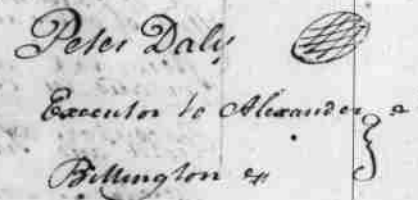 Peter Daly
Executor to Alexander
Billington